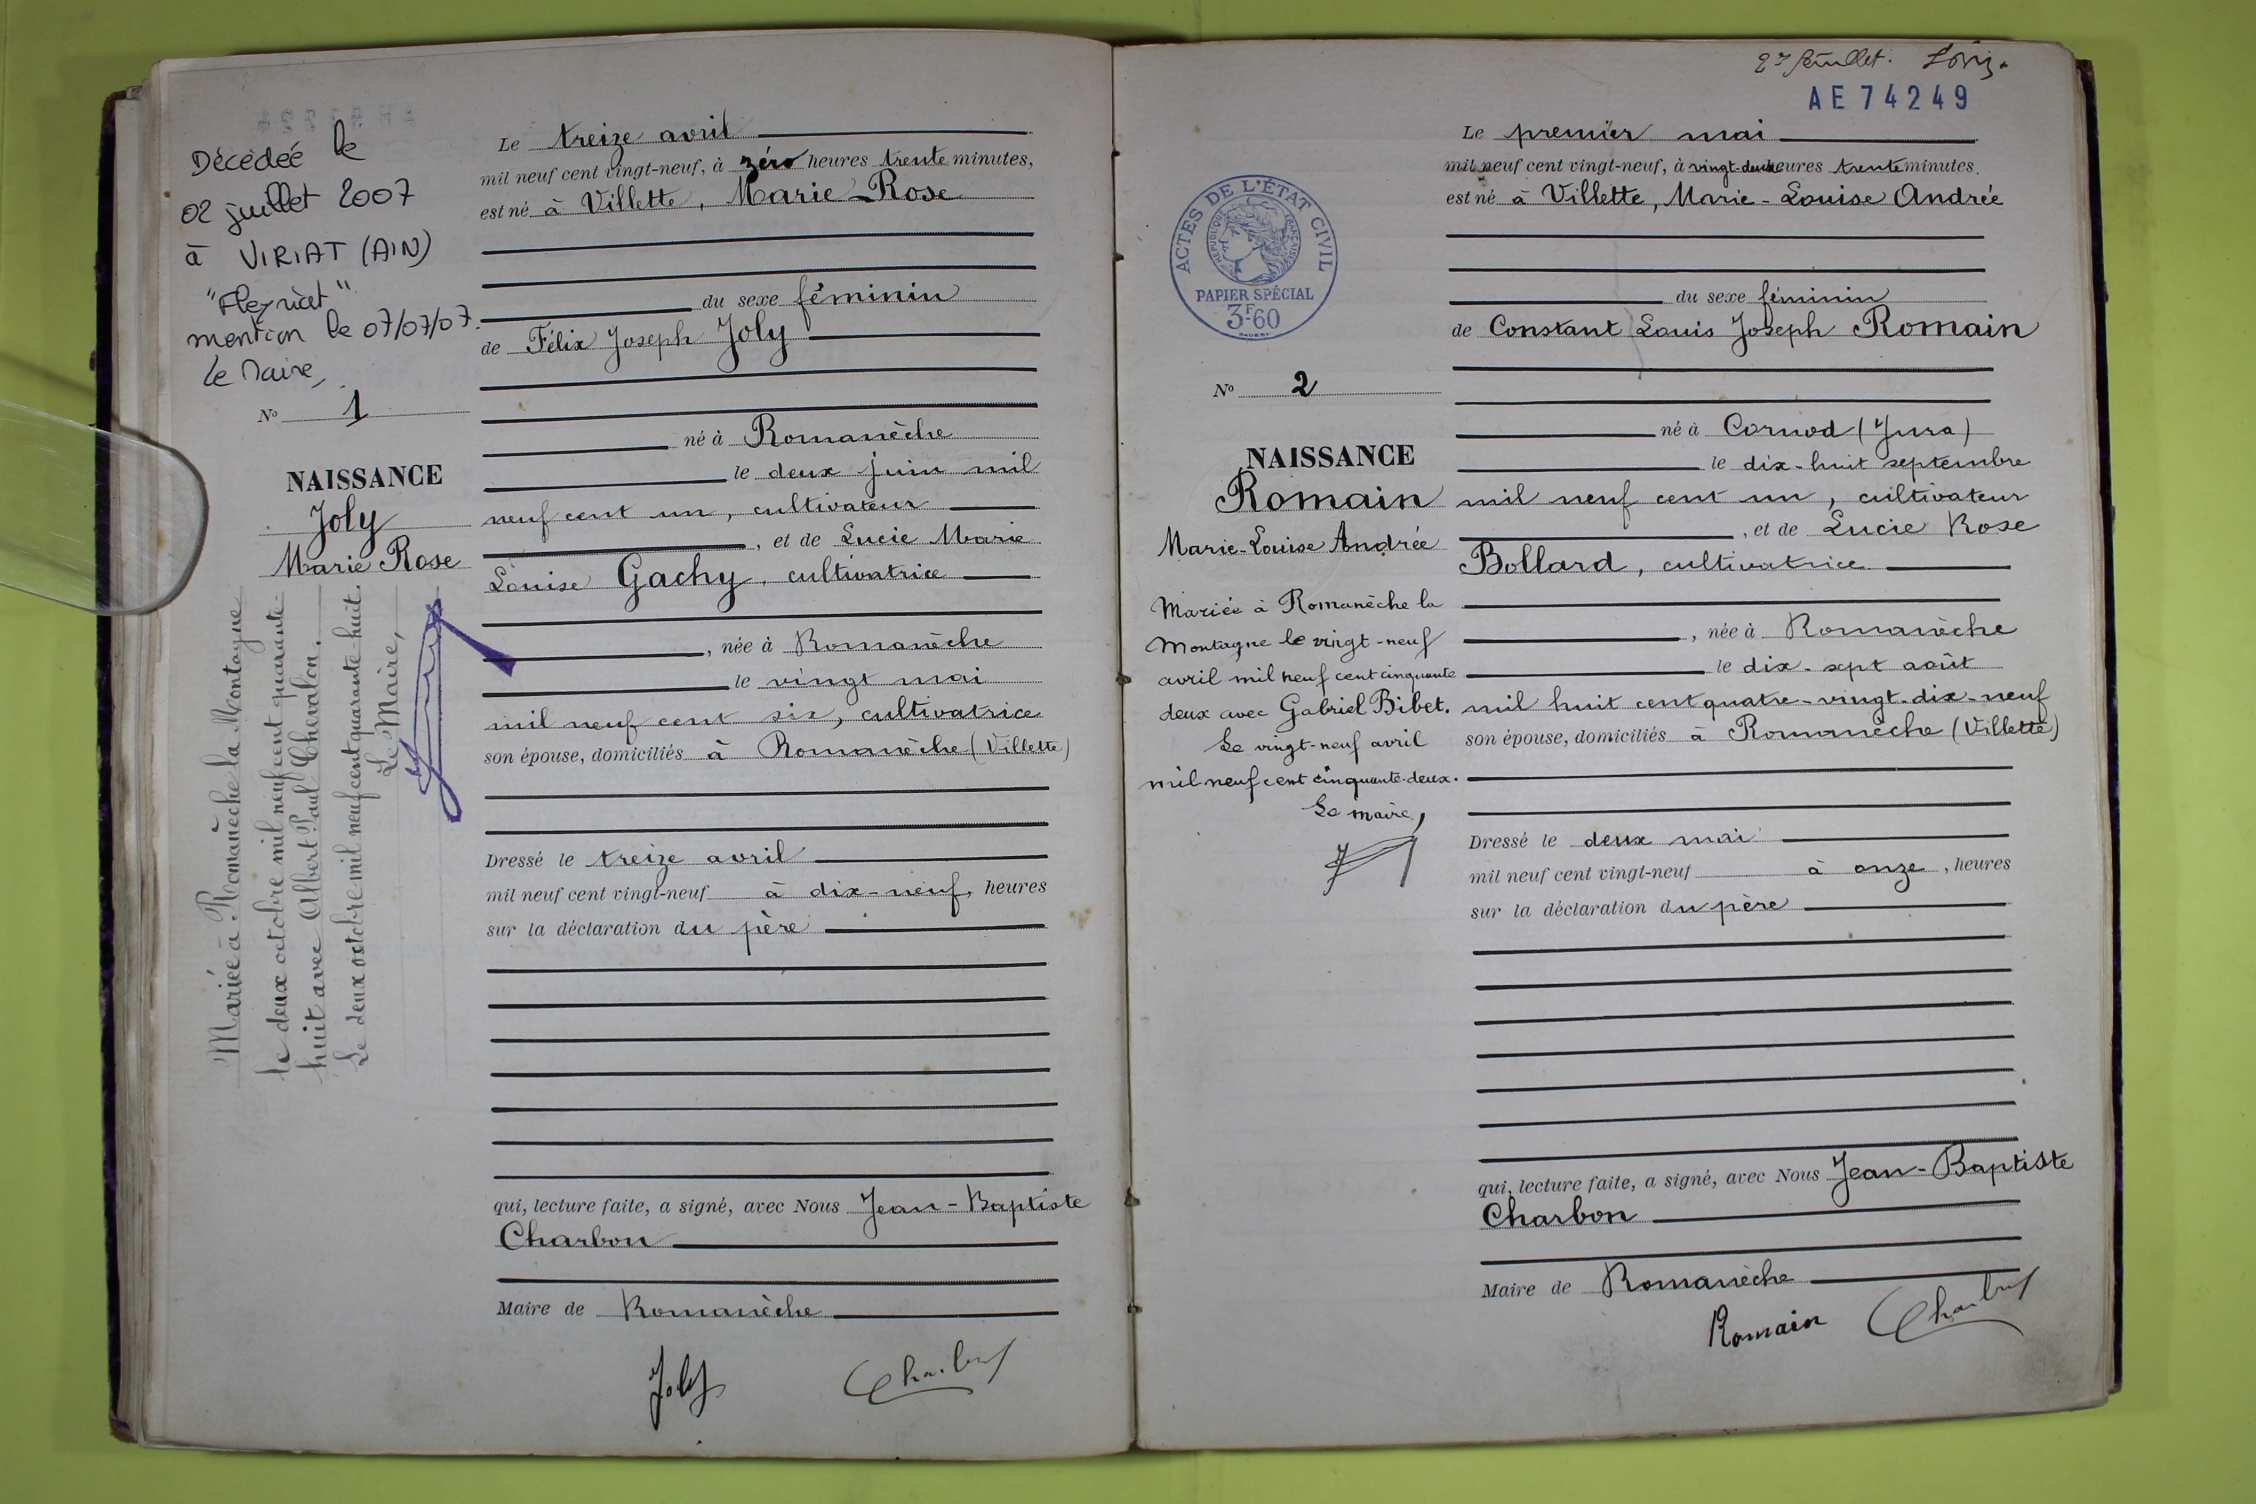 Décèdée le
02 juillet 2007
à VIRIAT (AIN)
"Fleyriat"
mention le 07/07/07.
Le Maire,
Nº 1
NAISSANCE
Joly
Marie Rose
Mariée à Romanèche la Montagne
le deux octobre mil neuf cent quarante-
huit avec Albert Paul Chevalon.
Le deux octobre mil neuf cent quarante-huit.
Le Maire,
Le treize avril
mil neuf cent vingt-neuf, à zéro heures trente minutes,
est né à Villette, Marie-Rose
du sexe féminin
de Félix Joseph Joly
né à Romanèche
le deux juin mil
neuf cent un, cultivateur
, et de Lucie Marie
Louise Gachy, cultivatrice
, née à Romanèche
le vingt mai
mil neuf cent six, cultivatrice
son épouse, domiciliés à Romanèche (Villette)
Dressé le treize avril
mil neuf cent vingt-neuf à dix-neuf, heures
sur la déclaration du père
qui, lecture faite, a signé, avec Nous Jean-Baptiste
Charbon
Maire de Romanèche
Joly Charbon
2e feuillet.
AE 74249
ACTES DE L'ÉTAT CIVIL
RÉPUBLIQUE FRANÇAISE
PAPIER SPÉCIAL
3F60
Nº 2
NAISSANCE
Romain
Marie-Louise Andrée
Mariée à Romanèche la
Montagne le vingt-neuf
avril mil neuf cent cinquante
deux avec Gabriel Bibet.
Le vingt-neuf avril
mil neuf cent cinquante-deux.
Le maire,
Le premier mai
mil neuf cent vingt-neuf, à vingt-deux heures trente minutes.
est né à Villette, Marie-Louise Andrée
du sexe féminin
de Constant Louis Joseph Romain
né à Cornod (Jura)
le dix-huit septembre
mil neuf cent un, cultivateur
, et de Lucie Rose
Bollard, cultivatrice
, née à Romanèche
le dix-sept août
mil huit cent quatre-vingt-dix-neuf
son épouse, domiciliés à Romanèche (Villette)
Dressé le deux mai
mil neuf cent vingt-neuf à onze, heures
sur la déclaration du père
qui, lecture faite, a signé, avec Nous Jean-Baptiste
Charbon
Maire de Romanèche
Romain Charbon